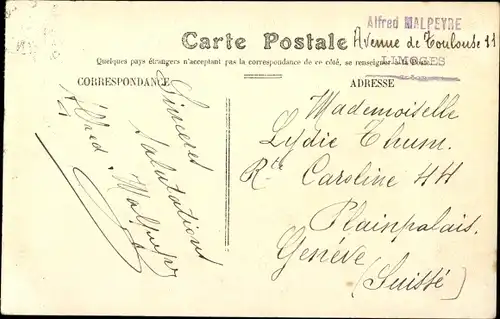 Alfred MALPEYRE
Avenue de Toulouse 11
LIMOGES
Carte Postale
Quelques pays étrangers n'acceptant pas la correspondance de ce côté, se renseigner à la Poste.
CORRESPONDANCE
ADRESSE
Sincères
Salutations
Alfred Malpeyre
Mademoiselle
Lydie Thum.
Rte Caroline 44
Plainpalais.
Genève
(Suisse)